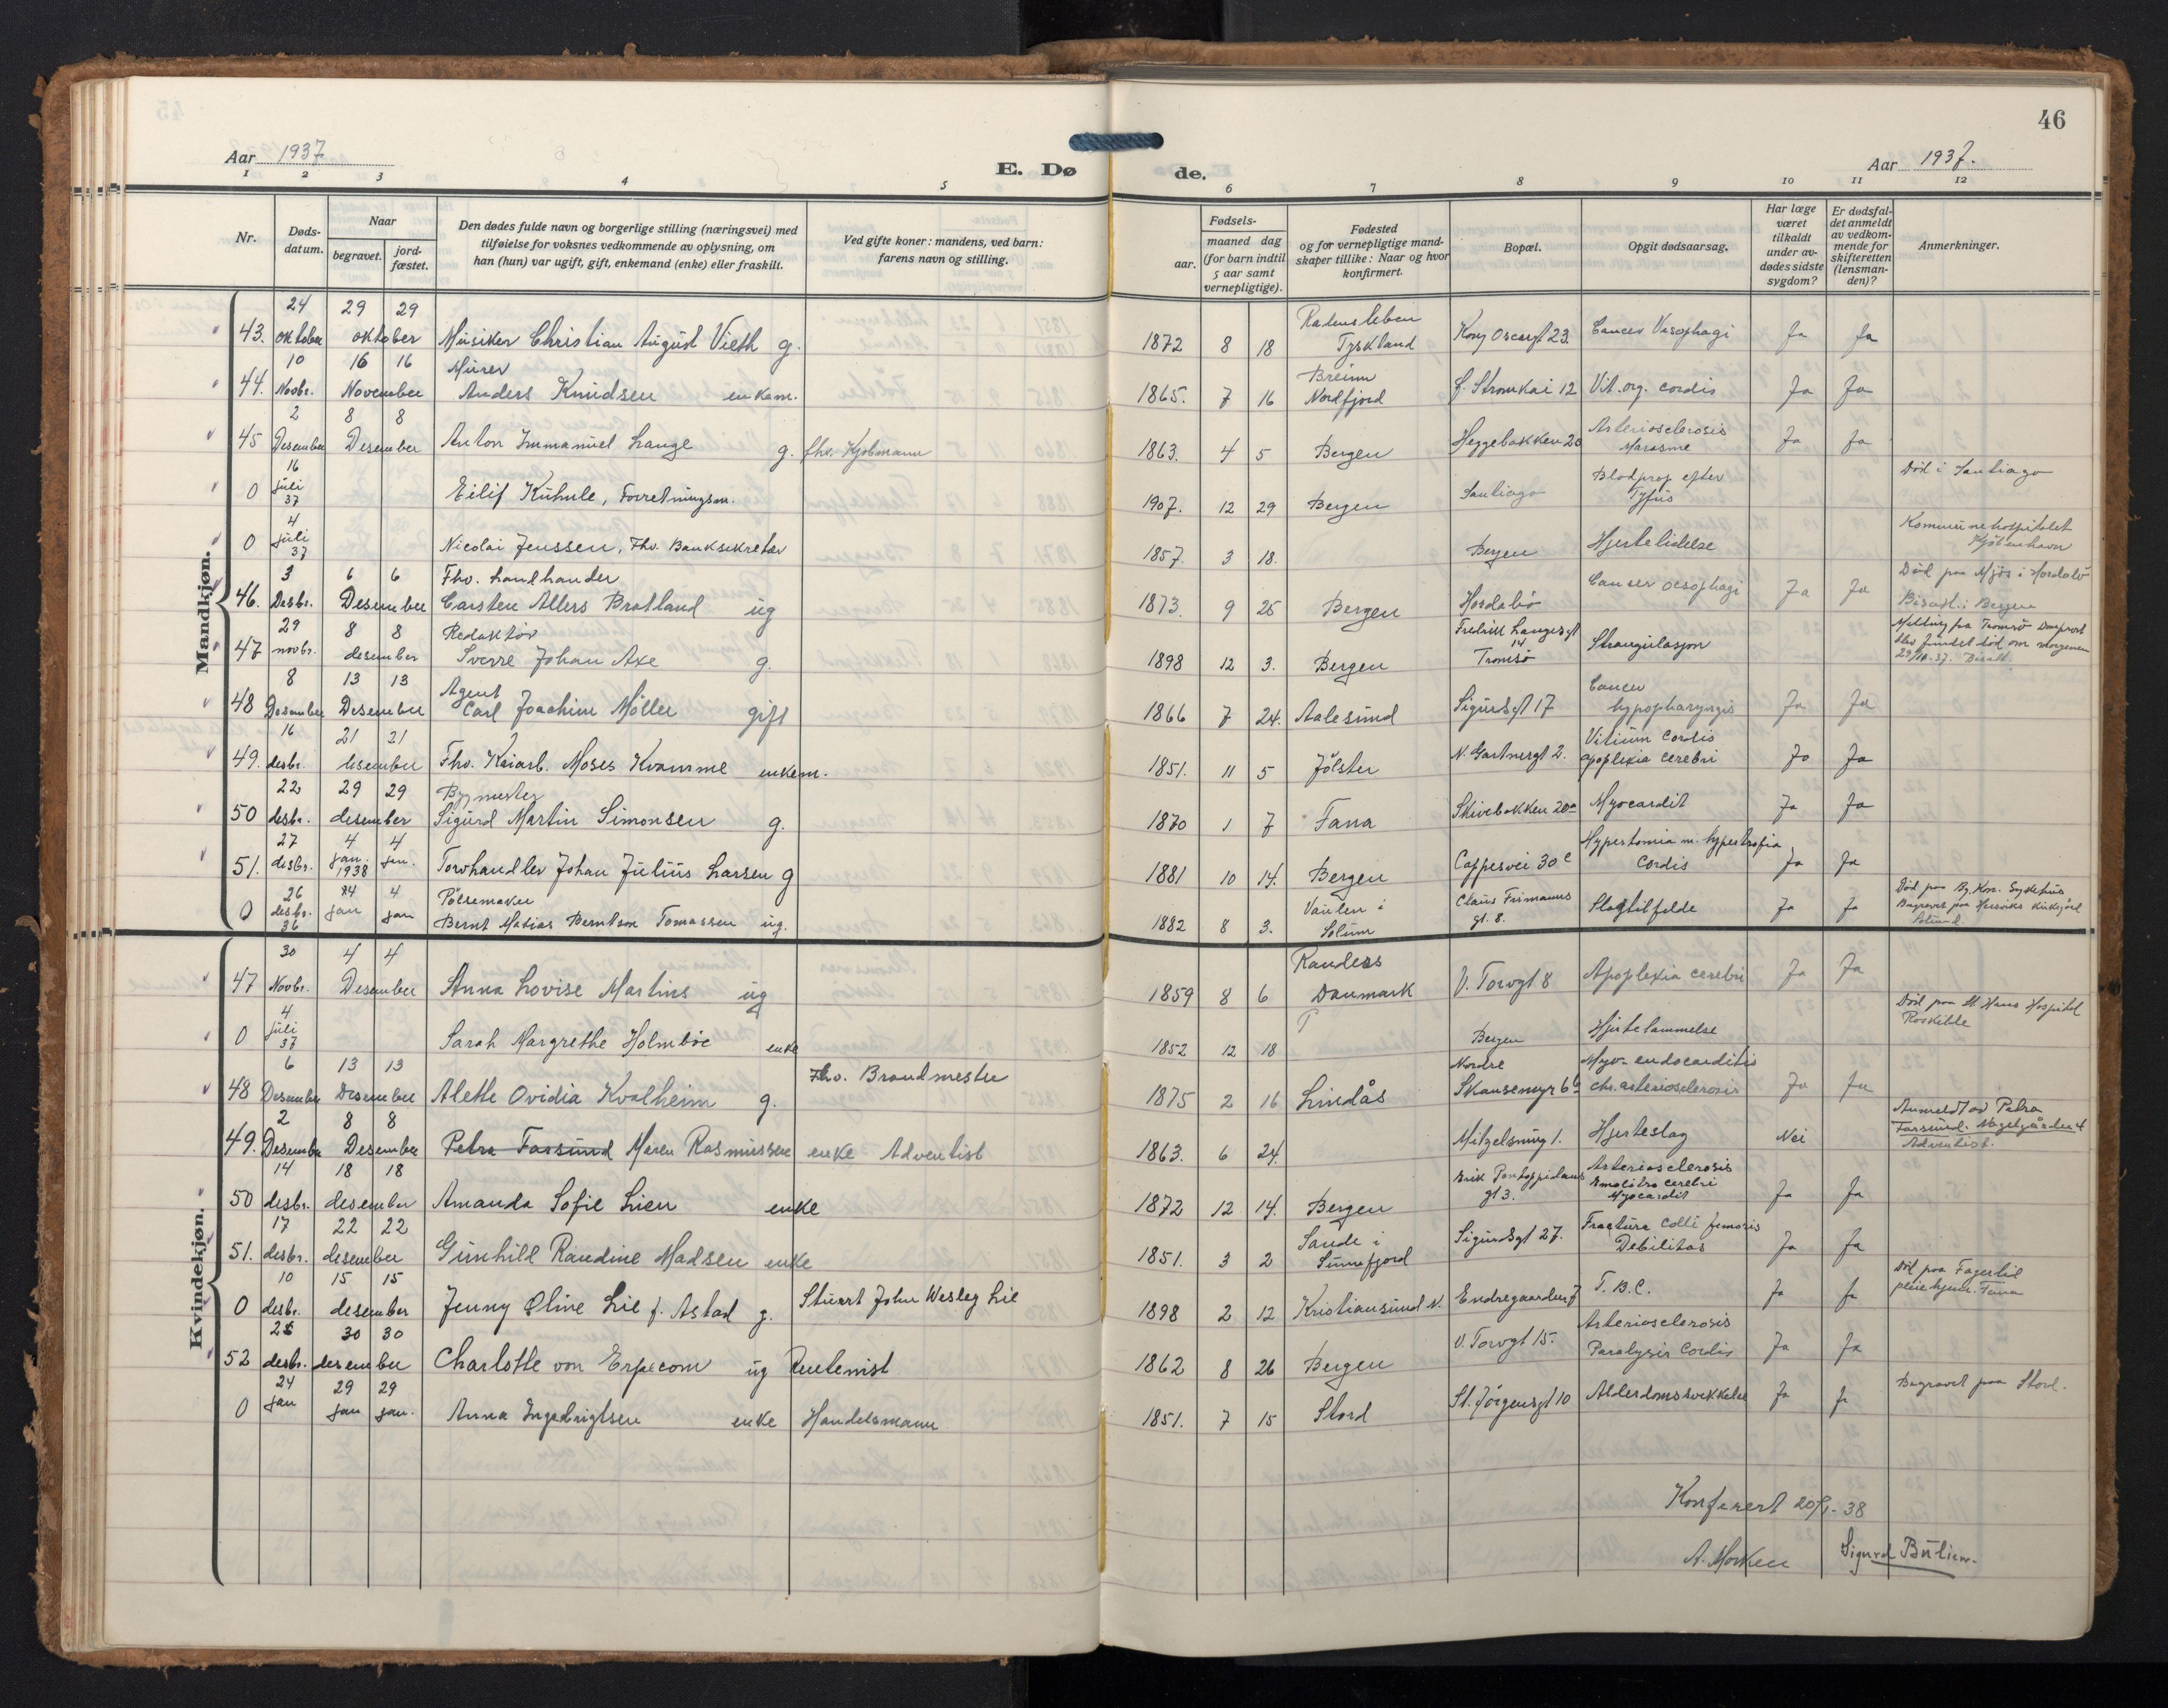 46
Aar 1937
E. Døde.
Aar 1937.
1 2 3 4 5 6 7 8 9 10 11 12
Nr.
Døds-datum.
Naar
begravet.
jord-fæstet.
Den dødes fulde navn og borgerlige stilling (næringsvei) med
tilføielse for voksnes vedkommende av oplysning, om
han (hun) var ugift, gift, enkemand (enke) eller fraskilt.
Ved gifte koner: mandens, ved barn:
farens navn og stilling.
Fødsels-
aar.
maaned dag
(for barn indtil
5 aar samt
vernepligtige).
Fødested
og for vernepligtige mand-
skaper tillike: Naar og hvor
konfirmert.
Bopæl.
Opgit dødsaarsag.
Har læge
været
tilkaldt
under av-
dødes sidste
sygdom?
Er dødsfal-
det anmeldt
av vedkom-
mende for
skifteretten
(lensman-
den)?
Anmerkninger.
Mandkjøn.
43. 24 oktober 29 29 oktober Musiker Christian August Vieth g. 1872 8 18 Tyskland Kong Oscarsgt 23. Cancer Ja Ja
44. 10 Novbr. 16 16 November Murer Anders Knudsen enkem. 1865. 7 16 Breim Nordfjord S. Strømkai 12 Vit. org. cordis Ja Ja
45 2 Desember 8 8 Desember Anton Immanuel Lange g. fhv. Kjøbmann 1863. 4 5 Bergen Heggebakken 20 Arteriosclerosis Marasme Ja Ja
0 16 juli 37 Eilif Kuhnle, Forretningsm. 1907. 12 29 Bergen Santiago Blodprop efter Tyfus Død i Santiago
0 4 juli 37 Nicolai Jenssen, Fhv. Banksekretær 1857. 3 18. Bergen Hjertelidelse Kommunehospitalet Kjöbenhavn
46. 3 Desbr. 6 6 Desember Fhv. Landhandler Carsten Allers Bratland ug 1873. 9 25 Bergen Hordabø Cancer oesophagi Ja Ja Død paa Mjøs i Hordabø Bisatt i Bergen
47 29 novbr. 8 8 desember Redaktör Sverre Johan Axe g. 1898 12 3. Bergen Fredrik Langesgt 14 Tromsø Strangulasjon Melding fra Tromsø Domprost blev fundet død om morgenen 29/11-37. Bisatt.
48 8 Desember 13 13 Desember Agent Carl Joachim Möller gift 1866 7 24. Aalesund Sigurdsgt 17 Cancer hypopharyngis Ja Ja
49. 16 desbr. 21 21 desember Fhv. Kaiarb. Moses Kvamme enkem. 1851. 11 5 Jölster N. Gartnergt 2. Vitium Cordis apoplexia cerebri Ja Ja
50 22 desbr. 29 29 desember Bygmester Sigurd Martin Simonsen g. 1870 1 7 Fana Skivebakken 20a Myocardit Ja Ja
51. 27 desbr. 4 jan. 1938 4 jan. Torvhandler Johan Julius Larsen g 1881 10 14. Bergen Cappesvei 30c Hypertonia m. hypertrofia Cordis Ja Ja
0 26 desbr. 36 4 jan 4 jan Pölsemaker Bernt Matias Berntson Tomassen ug. 1882 8 3. i Solum Claus Frimanns gt. 8. Slagtilfelde Ja Ja Død paa Sykehus
Kvindekjøn.
47 30 Novbr. 4 4 Desember Anna Lovise Martins ug 1859 8 6 Randers Danmark V. Torvgt 8 Apoplexia cerebri Ja Ja
0 4 juli 37 Sarah Margrethe Holmboe enke 1852 12 18 Bergen Hjertelammelse Død paa St. Hans Hospital Roskilde
48 6 Desember 13 13 Desember Alette Ovidia Kvalheim g. Fhv. Brandmester 1875 2 16 Lindås Nordre Skansemyr 6b Myo- endocarditis chr. arteriosclerosis Ja Ja
49. 2 Desember 8 8 Desember Petra Farsund Maren Rasmussen enke Adventist 1863. 6 24. Mitzelsmug 1. Hjerteslag Nei Anmeldt av Petra Farsund. Adventist.
50 14 desbr. 18 18 desember Amanda Sofie Lien enke 1872 12 14. Bergen Erik Pontoppidans gt 3. Arteriosclerosis cerebri Myocardit Ja Ja
51. 17 desbr. 22 22 desember Gunhild Raudine Madsen enke 1851. 3 2 Sande i Sunnfjord Sigurdsgt 27. Fractura Colli femoris Debilitas Ja Ja
0 10 desbr. 15 15 desember Jenny Oline Lie f. Astad g. Stuert John Wesley Lie 1898 2 12 Kristiansund N. Endregaarden 7 T. B. C. Ja Ja Død paa Fagerlid pleiehjem. Fana
52 25 desbr. 30 30 desember Charlotte von Erpecom ug Rentenist 1862 8 26 Bergen V. Torvgt 15. Arteriosclerosis Paralysis Cordis Ja Ja
0 24 jan 29 jan 29 jan. Anna Ingebrigtsen enke Handelsmann 1851. 7 15 Stord St. Jörgensgt 10 Alderdomssvekkelse Ja Ja Begravet paa Stord.
Konferert 20/1-38